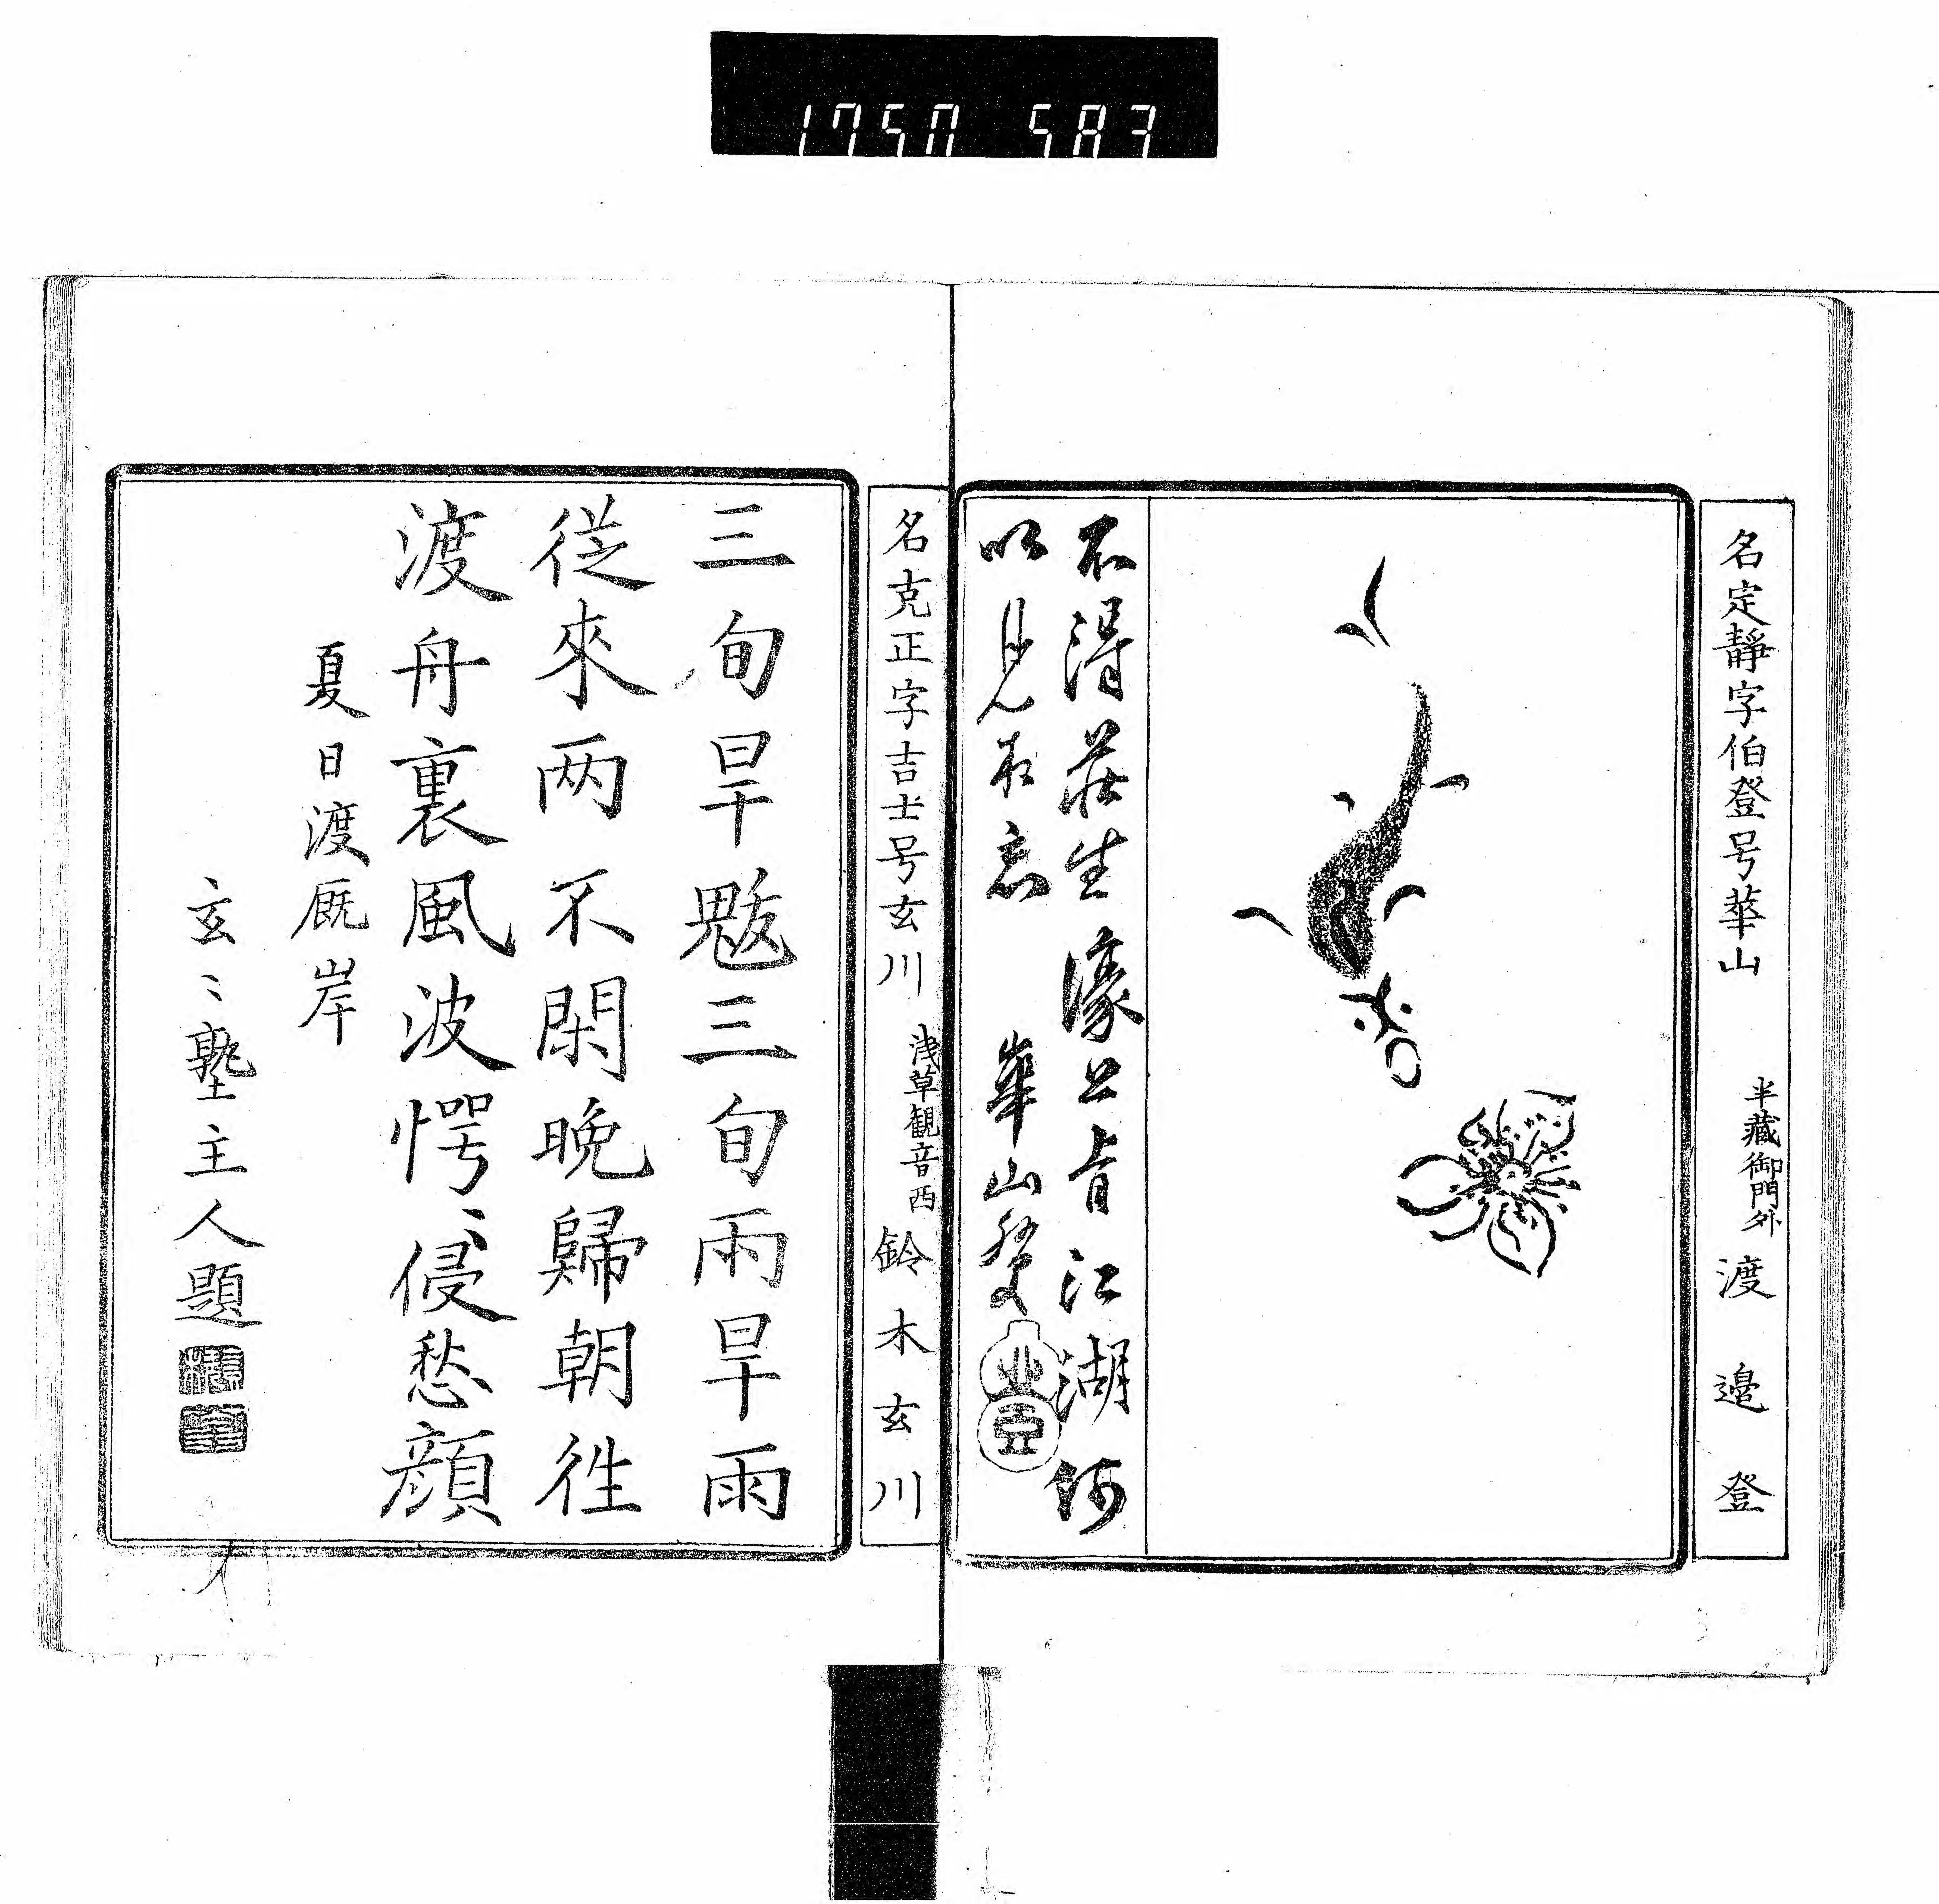 1750 583
名定靜字伯登号華山
半藏御門外
渡邉登
不得莊生濠上旨江湖何
以見相忘
華山
名克正字吉士号玄川
浅草観音西
鈴木玄川
三旬旱魃三旬雨旱雨
従來两不閑晩歸朝徃
渡舟裏風波愕〻侵愁顔
夏日渡厩岸
玄〻塾主人題